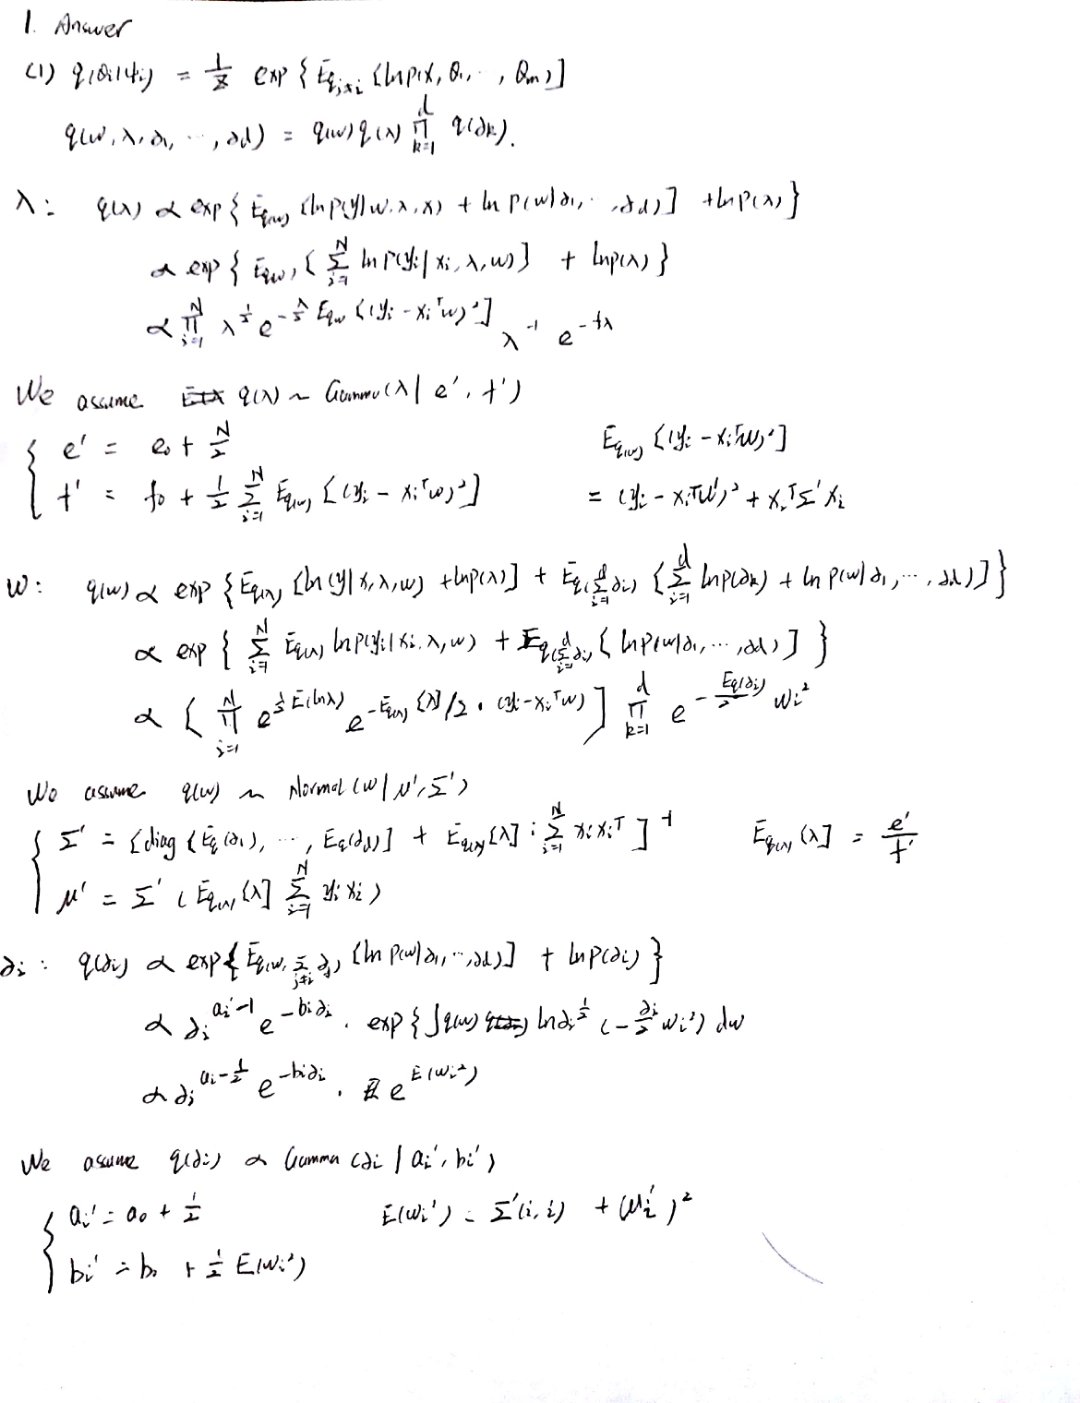 1. Answer
(1) q(θi|ψi) = 1/Z exp{ E_{q_{j≠i}} [ln p(x, θ1, ..., θm)]
q(w, λ, ∂1, ..., ∂d) = q(w) q(λ) ∏_{k=1}^{d} q(∂k).
λ: q(λ) ∝ exp{ E_{q(w)} [ln p(y|w, λ, x) + ln p(w|∂1, ..., ∂d)] + ln p(λ)}
∝ exp{ E_{q(w)} [∑_{i=1}^{N} ln p(yi|xi, λ, w)] + ln p(λ)}
∝ ∏_{i=1}^{N} λ^{1/2} e^{-λ/2 E_{qw} [(yi - xi^T w)^2]} λ^{-1} e^{-fλ}
We assume q(λ) ~ Gamma(λ| e', f')
{ e' = e0 + N/2 E_{q(w)} [(yi - xi^T w)^2]
f' = f0 + 1/2 ∑_{i=1}^{N} E_{q(w)} [(yi - xi^T w)^2] = (yi - xi^T μ')^2 + xi^T Σ' xi
w: q(w) ∝ exp{ E_{q(λ)} [ln(y|x, λ, w) + ln p(λ)] + E_{q(∑_{i=1}^{d} ∂i)} [∑_{i=1}^{d} ln p(∂k) + ln p(w|∂1, ..., ∂d)]}
∝ exp{ ∑_{i=1}^{N} E_{q(λ)} ln p(yi|xi, λ, w) + E_{q(∑_{i=1}^{d} ∂i)} [ln p(w|∂1, ..., ∂d)] }
∝ [ ∏_{i=1}^{N} e^{1/2 E(lnλ)} e^{-E_{q(λ)} [λ]/2 · (yi - xi^T w)} ] ∏_{k=1}^{d} e^{-E_{q(∂i)}/2 wi^2}
We assume q(w) ~ Normal(w| μ', Σ')
{ Σ' = [diag (E_q(∂1), ..., E_q(∂d)] + E_{q(λ)} [λ] ∑_{i=1}^{N} xi xi^T ]^{-1} E_{q(λ)} [λ] = e'/f'
μ' = Σ' ( E_{q(λ)} [λ] ∑_{i=1}^{N} yi xi )
∂i: q(∂i) ∝ exp{ E_{q(w, ∑_{j≠i} ∂j)} [ln p(w|∂1, ..., ∂d)] + ln p(∂i) }
∝ ∂i^{ai'-1} e^{-bi∂i} · exp{ ∫q(w) ln∂i^{1/2} (-∂i/2 wi^2) dw
∝ ∂i^{ai-1/2} e^{-bi∂i} · e^{E(wi^2)}
We assume q(∂i) ∝ Gamma(∂i | ai', bi')
{ ai' = a0 + 1/2 E(wi') = Σ'(i, i) + (μi')^2
bi' = b0 + 1/2 E(wi^2)